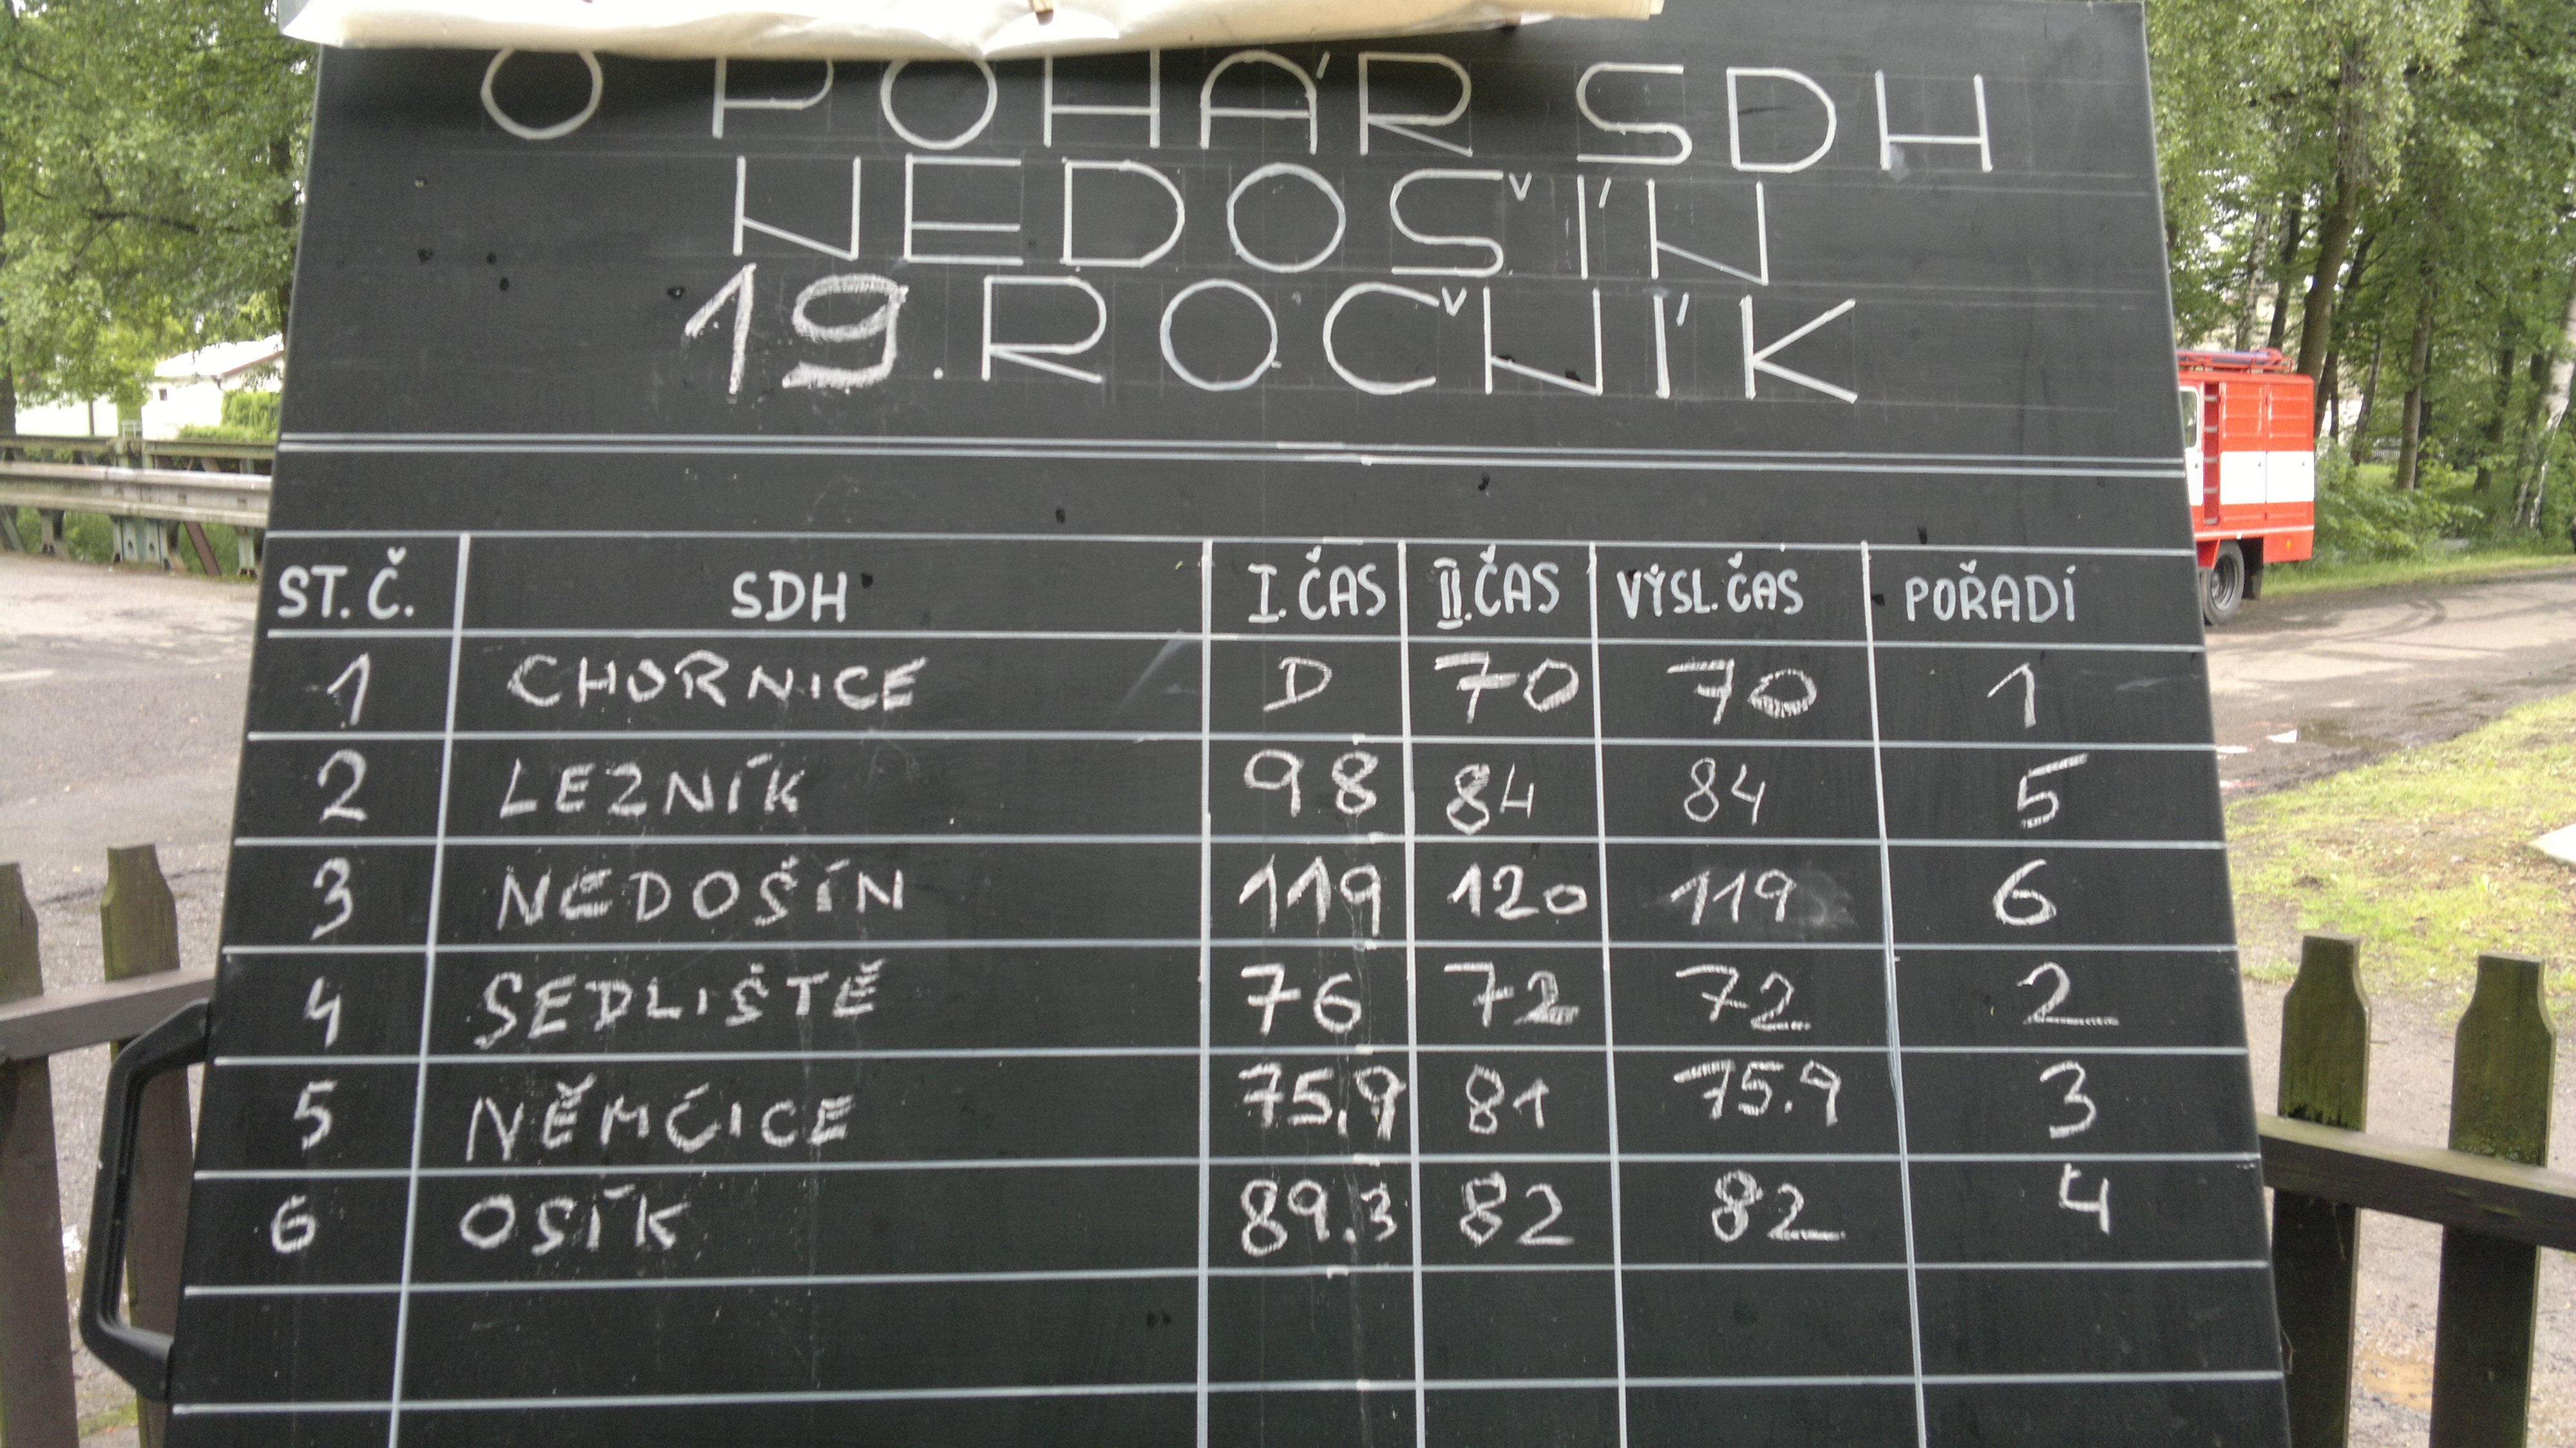 O POHÁR SDH
NEDOŠÍN
19. ROČNÍK
ST. Č. SDH I. ČAS II. ČAS VÝSL. ČAS POŘADÍ
1 CHORNICE D 70 70 1
2 LEZNÍK 98 84 84 5
3 NEDOŠÍN 119 120 119 6
4 SEDLIŠTĚ 76 72 72 2
5 NĚMČICE 75.9 81 75.9 3
6 OSÍK 89.3 82 82 4